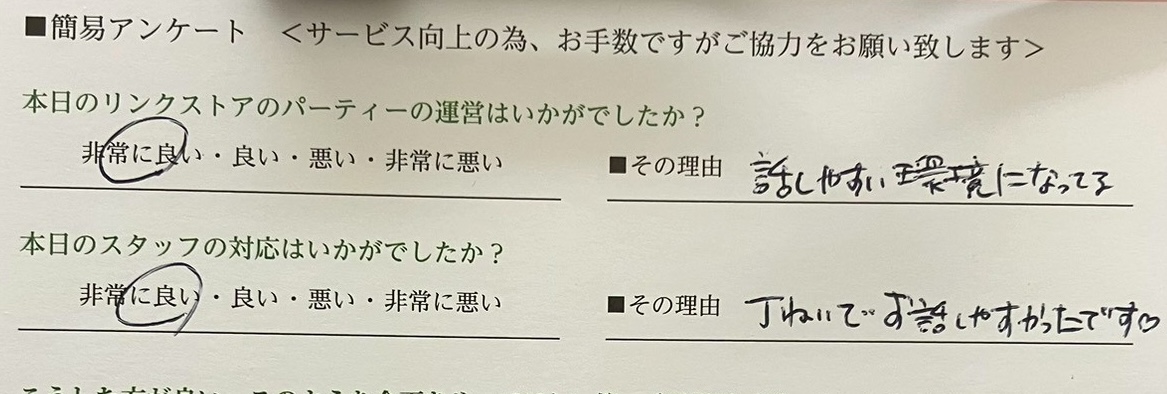 ■簡易アンケート　＜サービス向上の為、お手数ですがご協力をお願い致します＞
本日のリンクストアのパーティーの運営はいかがでしたか？
非常に良い・良い・悪い・非常に悪い　■その理由　話しやすい環境になってる
本日のスタッフの対応はいかがでしたか？
非常に良い・良い・悪い・非常に悪い　■その理由　丁ねいでお話しやすかったです♡